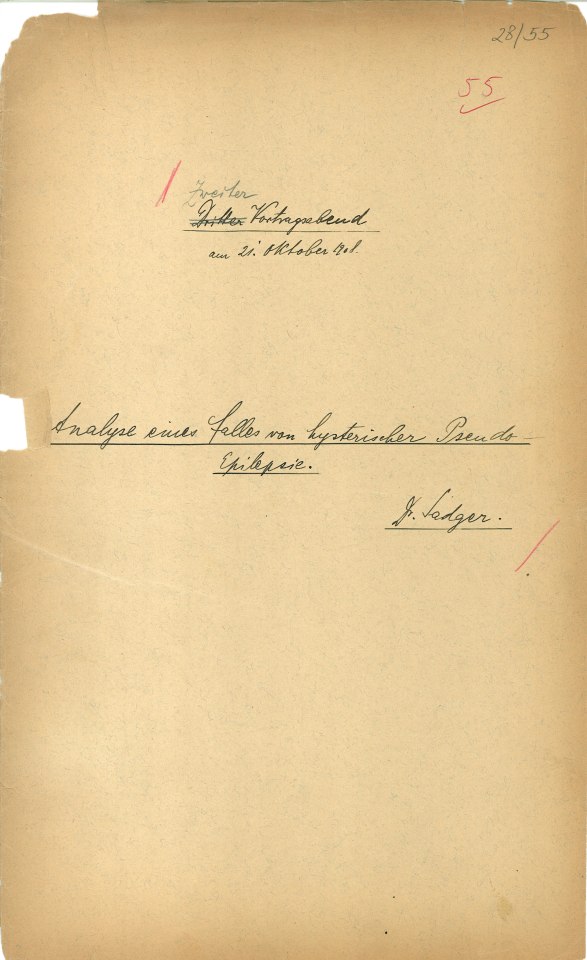 28/55
55
Zweiter
Dritter Vortragsabend
am 21. Oktober 1908.
Analyse eines Falles von hysterischer Pseudo-
Epilepsie.
Dr. Sadger.